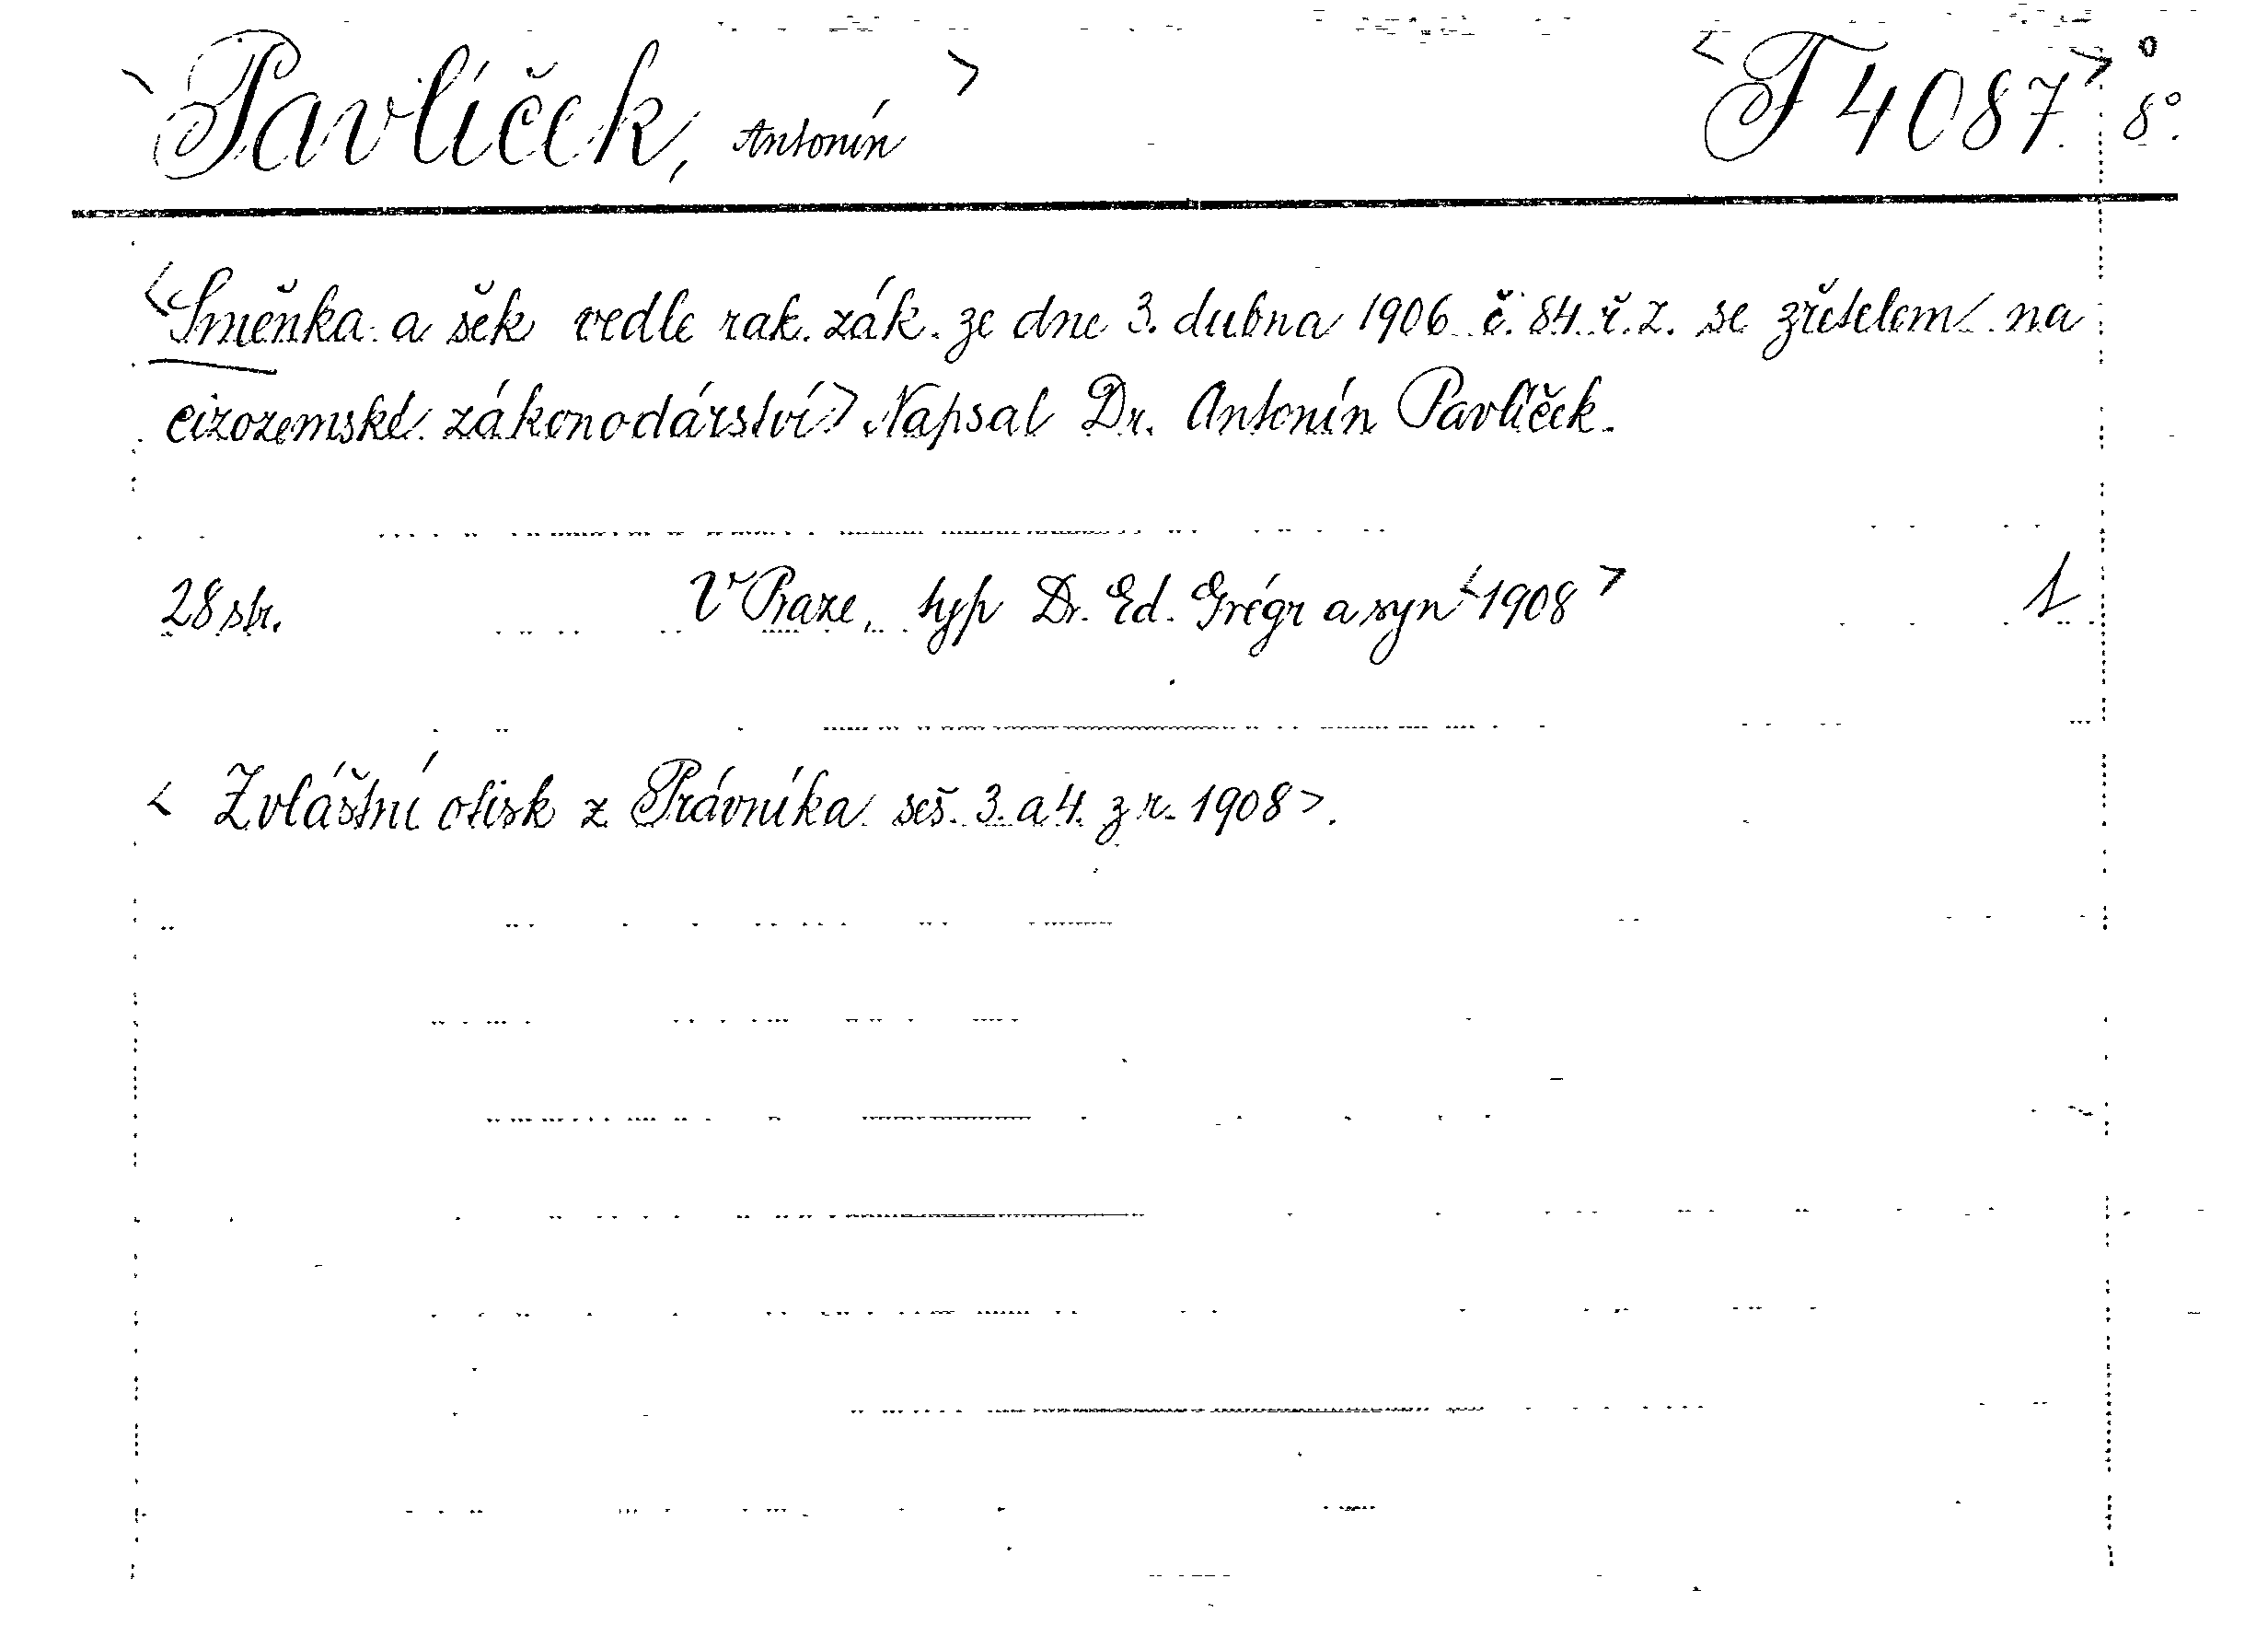 <Pavlíček, Antonín> <F 4087.> 8°.
<Směnka a šek vedle rak. zák. ze dne 3. dubna 1906 č. 84. ř. z. se zřetelem na
cizozemské zákonodárství> Napsal Dr. Antonín Pavlíček.
28 str. V Praze, typ Dr. Ed. Grégr a syn <1908> 1
< Zvláštní otisk z Právníka seš. 3. a 4. z r. 1908>.